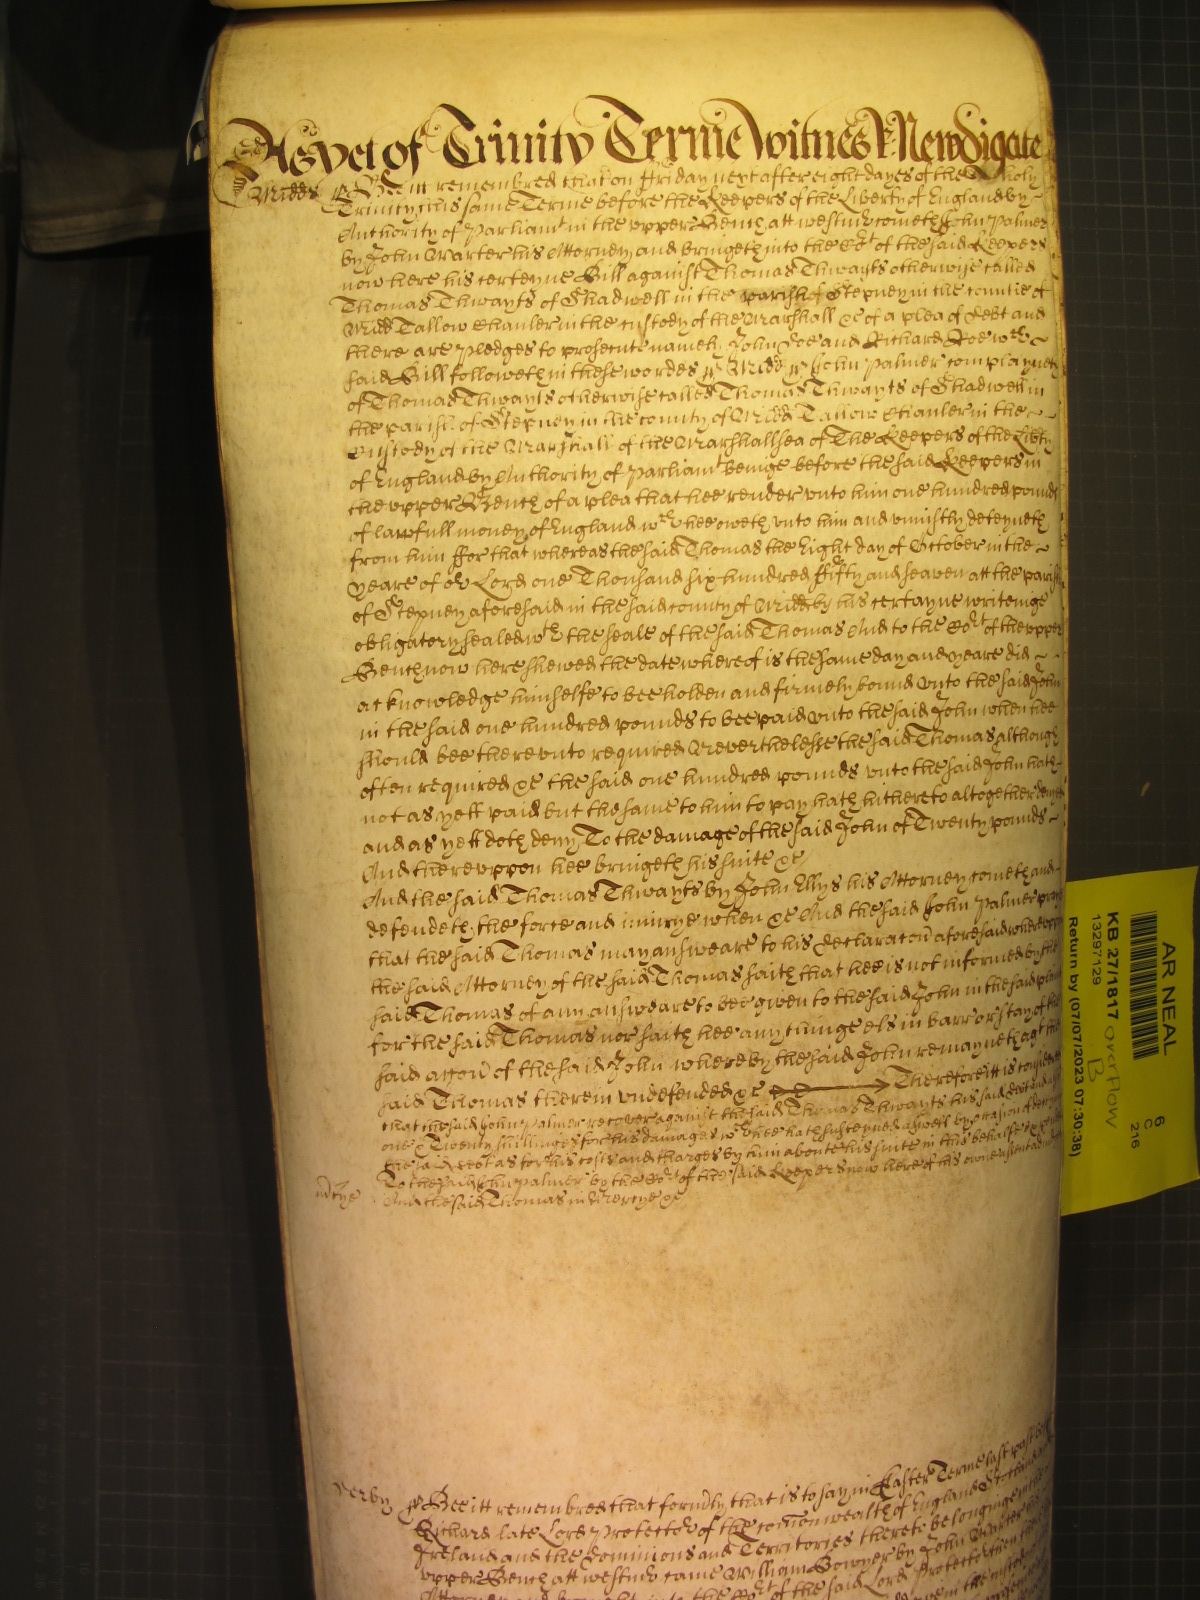 As yet of Trinity Terme witnes R Newdigate
Midds ss Bee itt remembred that on ffriday next after eight dayes of the Holy
Trinity this same Terme before the Keepers of the Liberty of England by
Authority of Parliamt in the upper Bench att westmr cometh John Palmer
by John Warter his Attorney and bringeth into the Cort of the said Keepers
now here his certeyne Bill against Thomas Thwayts otherwise called
Thomas Thwayts of Shadwell in the parish of Stepney in the countie of
Midd Tallow Chanler in the custody of the Marshall &c of a plea of debt and
there are pledges to prosecute namely John Doe and Richard Roe wch
said Bill followeth in these wordes ss Midd ss John Palmer complayneth
of Thomas Thwayts otherwise called Thomas Thwayts of Shadwell in
the parish of Stepney in the county of Midd Tallow Chanler in the
custody of the Marshall of the Marshallsea of The Keepers of the Libty
of England by Authority of Parliamt beinge before the said Keepers in
the upper Bench of a plea that hee render unto him one hundred pounds
of lawfull money of England wch hee oweth unto him and uniustly deteyneth
from him ffor that whereas the said Thomas the Eight day of October in the
yeare of or Lord one Thousand six hundred ffifty and seaven att the parish
of Stepney aforesaid in the said county of Midd by his certayne writeinge
obligatory sealed wth the seale of the said Thomas And to the Cort of the upper
Bench now here shewed the date whereof is the same day and yeare did
acknowledge himselfe to bee holden and firmely bound unto the said John
in the said one hundred pounds to bee paid unto the said John when hee
should bee thereunto required Neverthelesse the said Thomas although
often required &c the said one hundred pounds unto the said John hath
not as yett paid but the same to him to pay hath hithereto altogether denyed
and as yett doth deny To the damage of the said John of Twenty pounds
And thereuppon hee bringeth his suite &c
And the said Thomas Thwayts by John Ellys his Attorney cometh and
defendeth the force and iniurye when &c And the said John Palmer prayeth
that the said Thomas may answeare to his declaracon aforesaid whereuppon
the said Attorney of the said Thomas saith that hee is not informed by the
said Thomas of any answeare to bee given to the said John in the said plaint
for the said Thomas nor saith hee any thinge els in barr or stay of the
said accon of the said John whereby the said John remayneth agt the
said Thomas therein undefended &c Therefore itt is considered
that the said John Palmer recover against the said Thomas Thwayts his said debt and
one & Twenty shillinges for his damages wch hee hath susteyned aswell by occasion of deteyning
the said debt as for his costs and charges by him aboute his suite in this behalfe expended
To the said John Palmer by the Cort of the said Keepers now here of his owne assent
mercye And the said Thomas in Mercye &c
Derby ss Bee itt remembred that formerly that is to say in Easter Terme last past before
Richard late Lord Protector of the comonwealth of England Scotland and
Ireland and the Dominions and Territories thereto belonginge in the
upper Bench att westmr came William Bowyer by John Warter
Attorney and brought into the Cort of the said Lord Protector then
AR NEAL
KB 27/1817 overflow
13297129 B
Return by (07/07/2023 07:30:38)
6
C
216